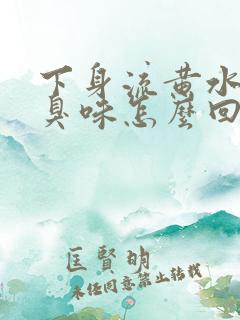 下身流黄水
臭味怎麼回
匡賢明
未经同意禁止转载